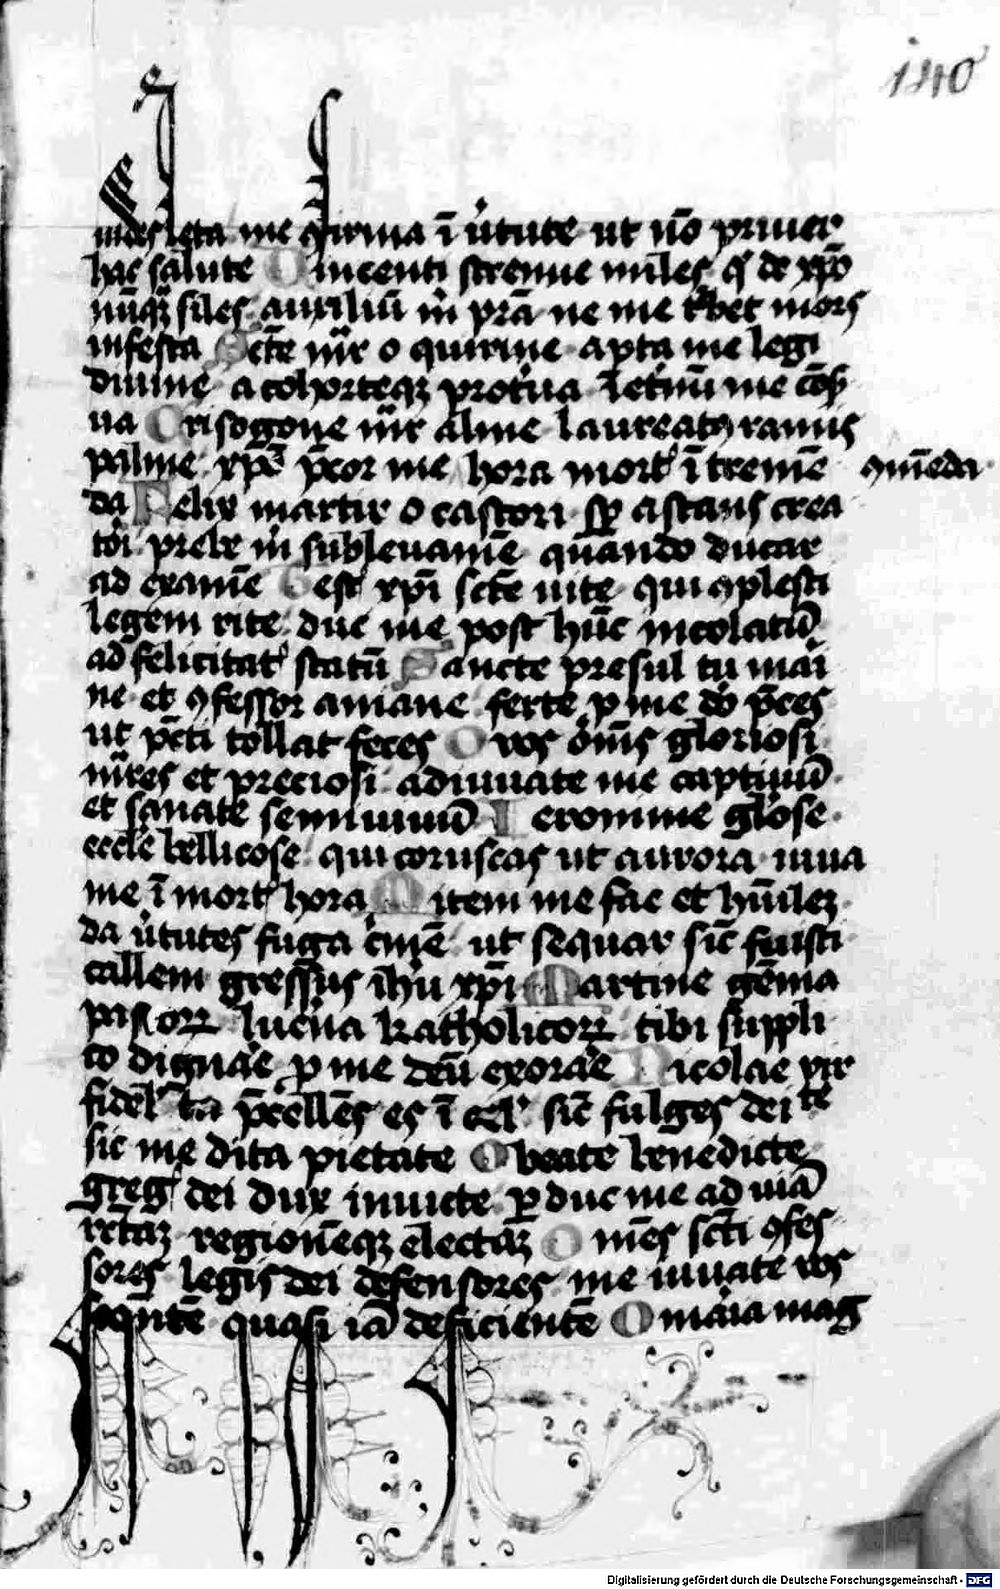 140
iudex leta me ꝯfirma ī ũtute ut nō priuer
hac salute Uincenti strenue miles q̄ de xp̄o
nūq̄ siles auxiliū m̄ prā ne me t̾bet mors
infesta Sc̄te mr̄ o quirine apta me legi
diuine a cohorteq̄ prot̾ua
ua Crisogone mr̄ alme laureatꝰ ramis
palme xp̄o p̄cor me hora mort̾ ī tremē
ꝯmēda
da Felix martir o castori sp̄ astans crea
tōi prebe m̄ subleuamē quando ducar
ad examē Gest xp̄i sc̄te uite qui ꝯplesti
legem rite duc me post hūc incolatū
ad felicitat̾ statū Sancte presul tu maxi
ne et ꝯfessor aniane ferte p me dō p̄ces
ut pc̄ti tollat feces O vos ōm̄s gloriosi
mr̄es et preciosi adiuuate me captiuū
et sanate semiuiuū Ieronime gl̄ose
ecclē bellicose qui coruscas ut aurora iuua
me ī mort̾ hora Mitem me fac et hūilez
da ũtutes fuga c̾mē ut sequar sic̄ fuisti
callem gressus ih̄u xp̄i Martine gēma
pastoꝝ lucerna katholicoꝝ tibi suppli
co dignāe p me deū exorāe Nicolae vir
fidel̾ tā p̄cellēs es ī cel̾ sic̄ fulges deitate
sic me dita pietate O beate benedicte
greg̾ dei dux inuicte pduc me ad uiā
rectaz regionēq̄ electaz Omēs sc̄ti ꝯfes
sores legis dei defensores me iuuate vos
seqntē quasi iā deficientē O maria mag
Digitalisierung gefördert durch die Deutsche Forschungsgemeinschaft - DFG